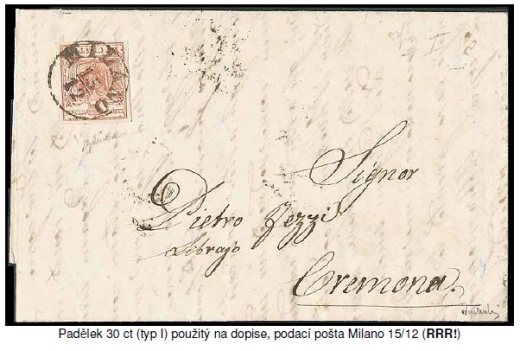 MILANO
Signor
Pietro Fezzi
Librajo
Cremona.
Padělek 30 ct (typ I) použitý na dopise, podací pošta Milano 15/12 (RRR!)